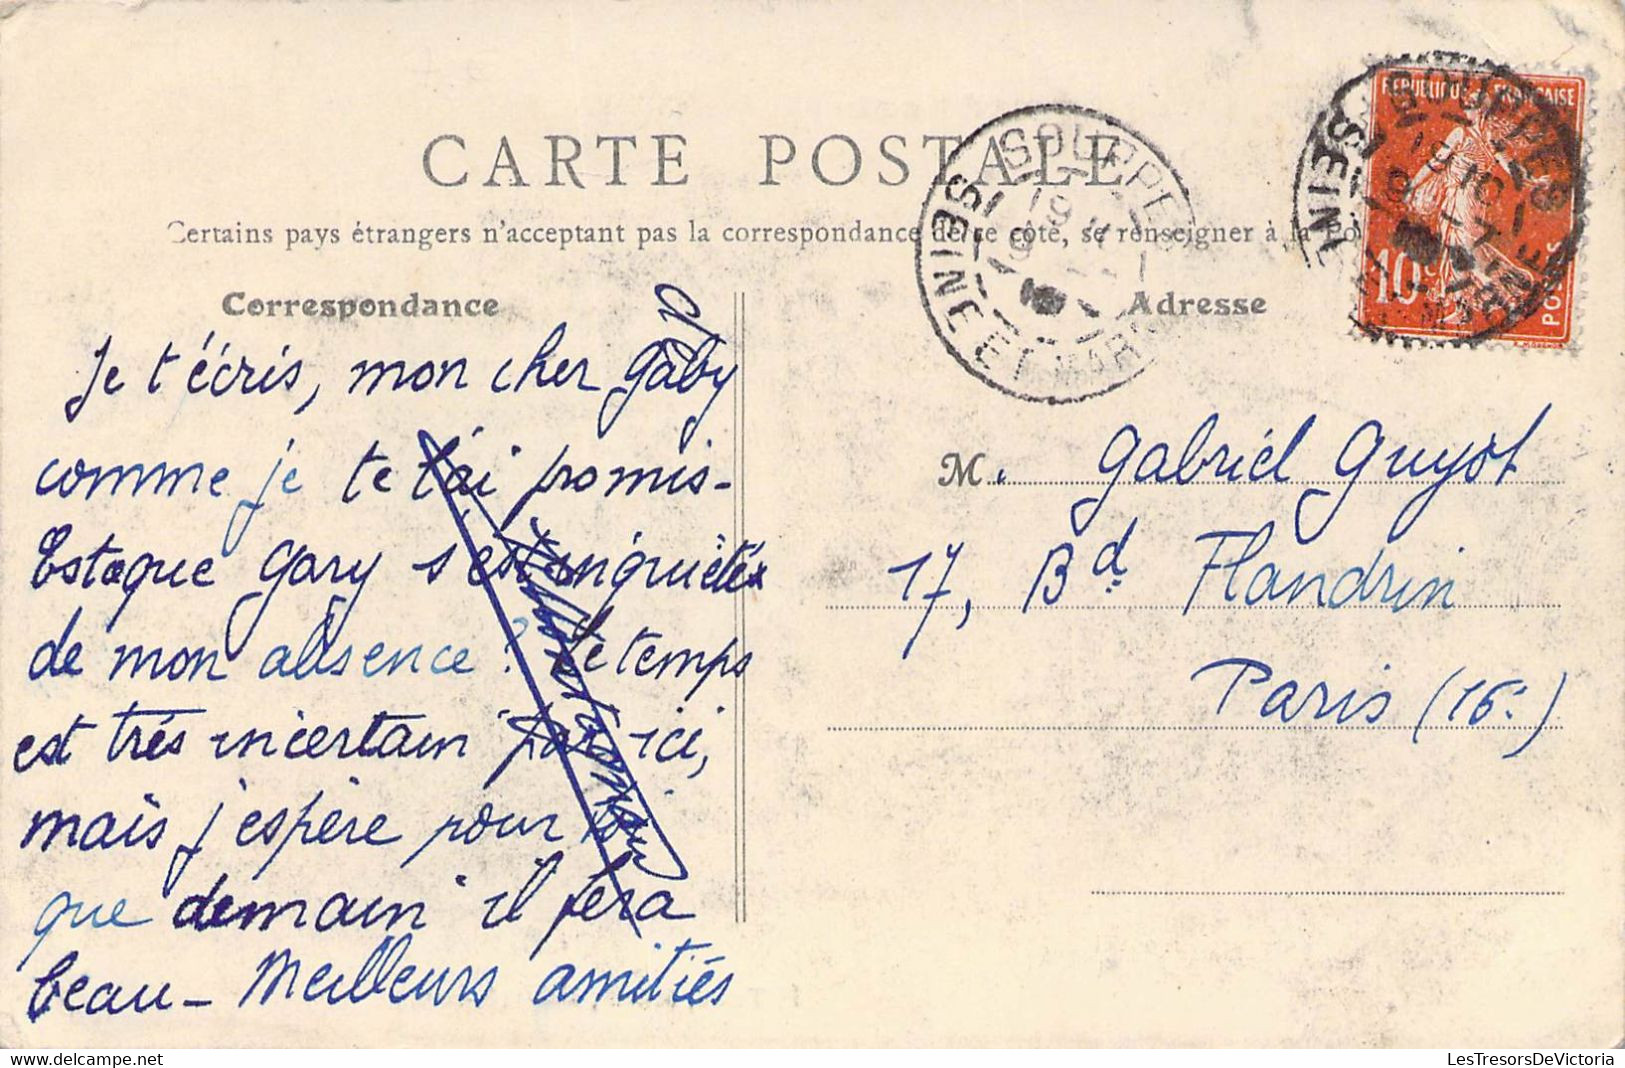 CARTE POSTALE
Certains pays étrangers n'acceptant pas la correspondance de ce côté, se renseigner à la Po
Correspondance
Adresse
RÉPUBLIQUE FRANÇAISE
10c
POSTES
SOUPPES
SEINE ET MAR
SOUPPES
SEINE
Je t'écris, mon cher Gaby
comme je te l'ai promis-
Estaque Gary s'est inquiété
de mon absence ? Le temps
est très incertain par ici,
mais j'espère pour toi
que demain il fera
beau - Meilleurs amitiés
M. Gabriel Guyot
17, Bd Flandrin
Paris (16e)
LesTresorsDeVictoria